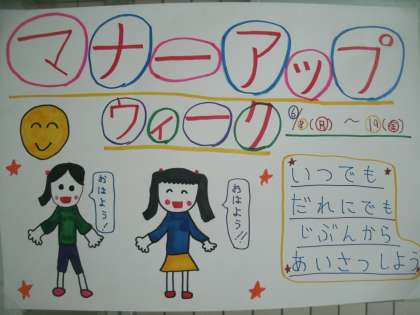 マナーアップ
ウィーク
6/8(月)〜19(金)
おはよう!
おはよう!!
いつでも
だれにでも
じぶんから
あいさつしよう